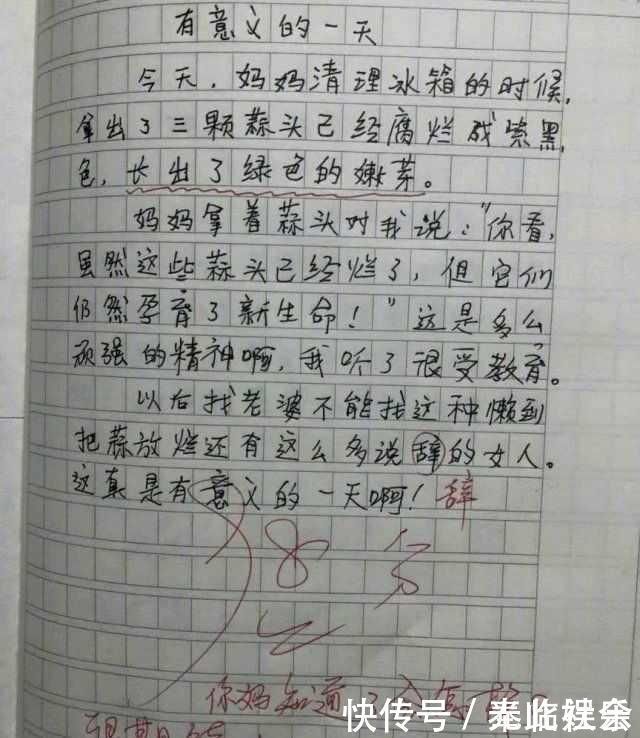 有意义的一天
今天，妈妈清理冰箱的时候，
拿出了三颗蒜头已经腐烂成紫黑
色，长出了绿色的嫩芽。
妈妈拿着蒜头对我说："你看，
虽然这些蒜头已经烂了，但它们
仍然孕育了新生命！"这是多么
顽强的精神啊，我听了很受教育。
以后找老婆不能找这种懒到
把蒜放烂还有这么多说辞的女人。
这真是有意义的一天啊！辞
8分
你妈知道了会怎
快传号／